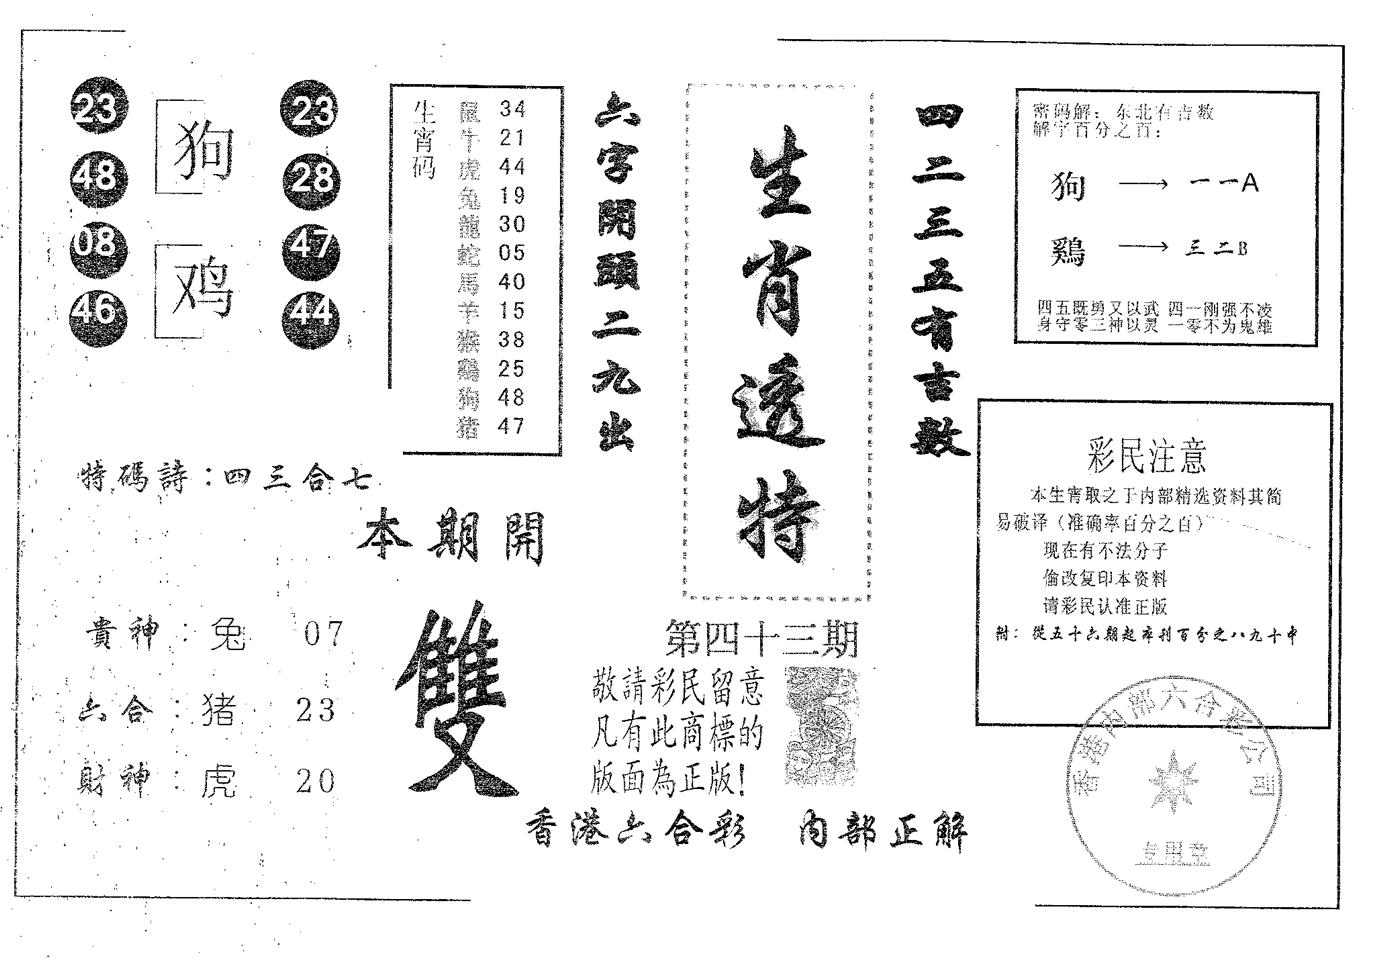 23
48
08
46
狗
鸡
23
28
47
44
生宵码
鼠 34
牛 21
虎 44
兔 19
龍 30
蛇 05
馬 40
羊 15
猴 38
鷄 25
狗 48
猪 47
六字開頭二九出
生肖透特
四二三五有吉数
密码解：东北有吉数
解字百分之百：
狗 → 一一A
鷄 → 三二B
四五既勇又以武 四一刚强不凌
身守零三神以灵 一零不为鬼雄
特碼詩：四三合七
本期開
雙
貴神：兔 07
六合：猪 23
財神：虎 20
第四十三期
敬請彩民留意
凡有此商標的
版面為正版！
香港六合彩 内部正解
彩民注意
本生宵取之于内部精选资料其简
易破译（准确率百分之百）
现在有不法分子
偷改复印本资料
请彩民认准正版
附：從五十六期起本刊百分之八九十中
香港内部六合彩公司
专用章